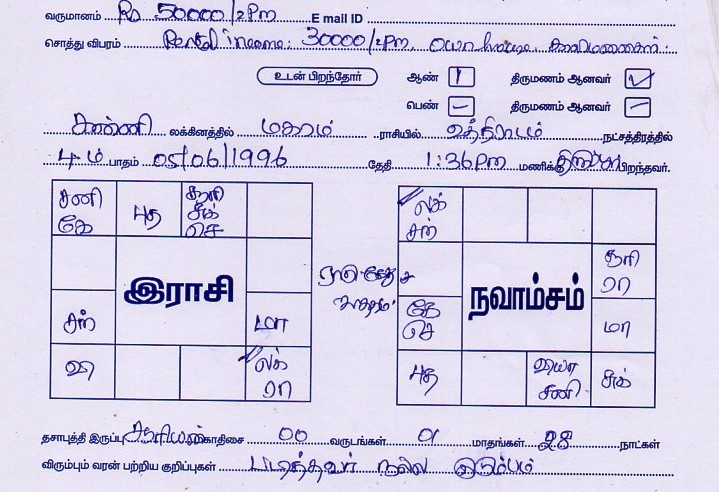 வருமானம் Rs 50000/2Pm E mail ID
சொத்து விபரம் Rental income: 30000/2Pm, own house, காலிமனைகள்.
உடன் பிறந்தோர் ஆண் 1 திருமணம் ஆனவர் ✓
பெண் – திருமணம் ஆனவர் –
கன்னி லக்கினத்தில் மகரம் ராசியில் உத்திராடம் நட்சத்திரத்தில்
4ம் பாதம் 05/06/1996 தேதி 1:36Pm மணிக்கு பிறந்தவர்.
சனி கே புத சூரி சுக் செ
இராசி
சந் மா
குரு லக் ரா
லக் சந்
நவாம்சம்
சூரி ரா
கே செ மா
புத குரு சனி சுக்
தசாபுத்தி இருப்பு சூரியன் மகாதிசை 00 வருடங்கள் 01 மாதங்கள் 28 நாட்கள்
விரும்பும் வரன் பற்றிய குறிப்புகள் படித்தவர் நல்ல குடும்பம்